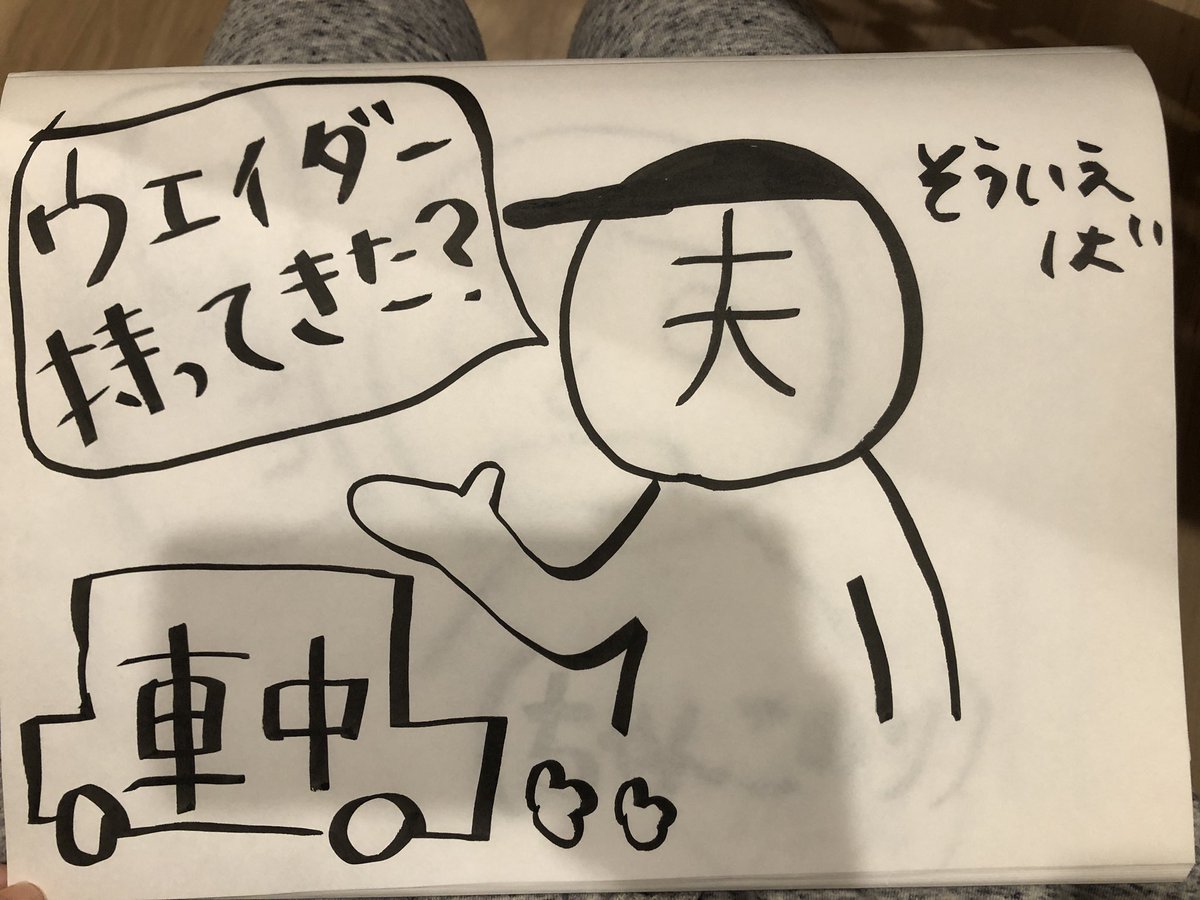 そういえ
ば
夫
ウエイダー
持ってきた?
車中